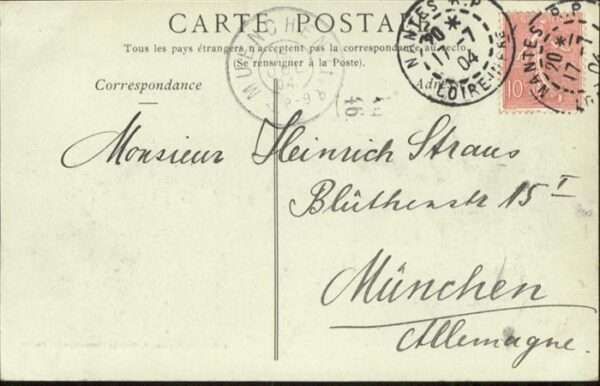 CARTE POSTALE
Tous les pays étrangers n'acceptent pas la correspondance au recto.
(Se renseigner à la Poste).
Correspondance
NANTES R.P
20*
17-7
04
LOIRE-INFRE
10
NANTES
20*
17-7
04
Monsieur Heinrich Straus
Blüthenstr 15 I
München
Allemagne.